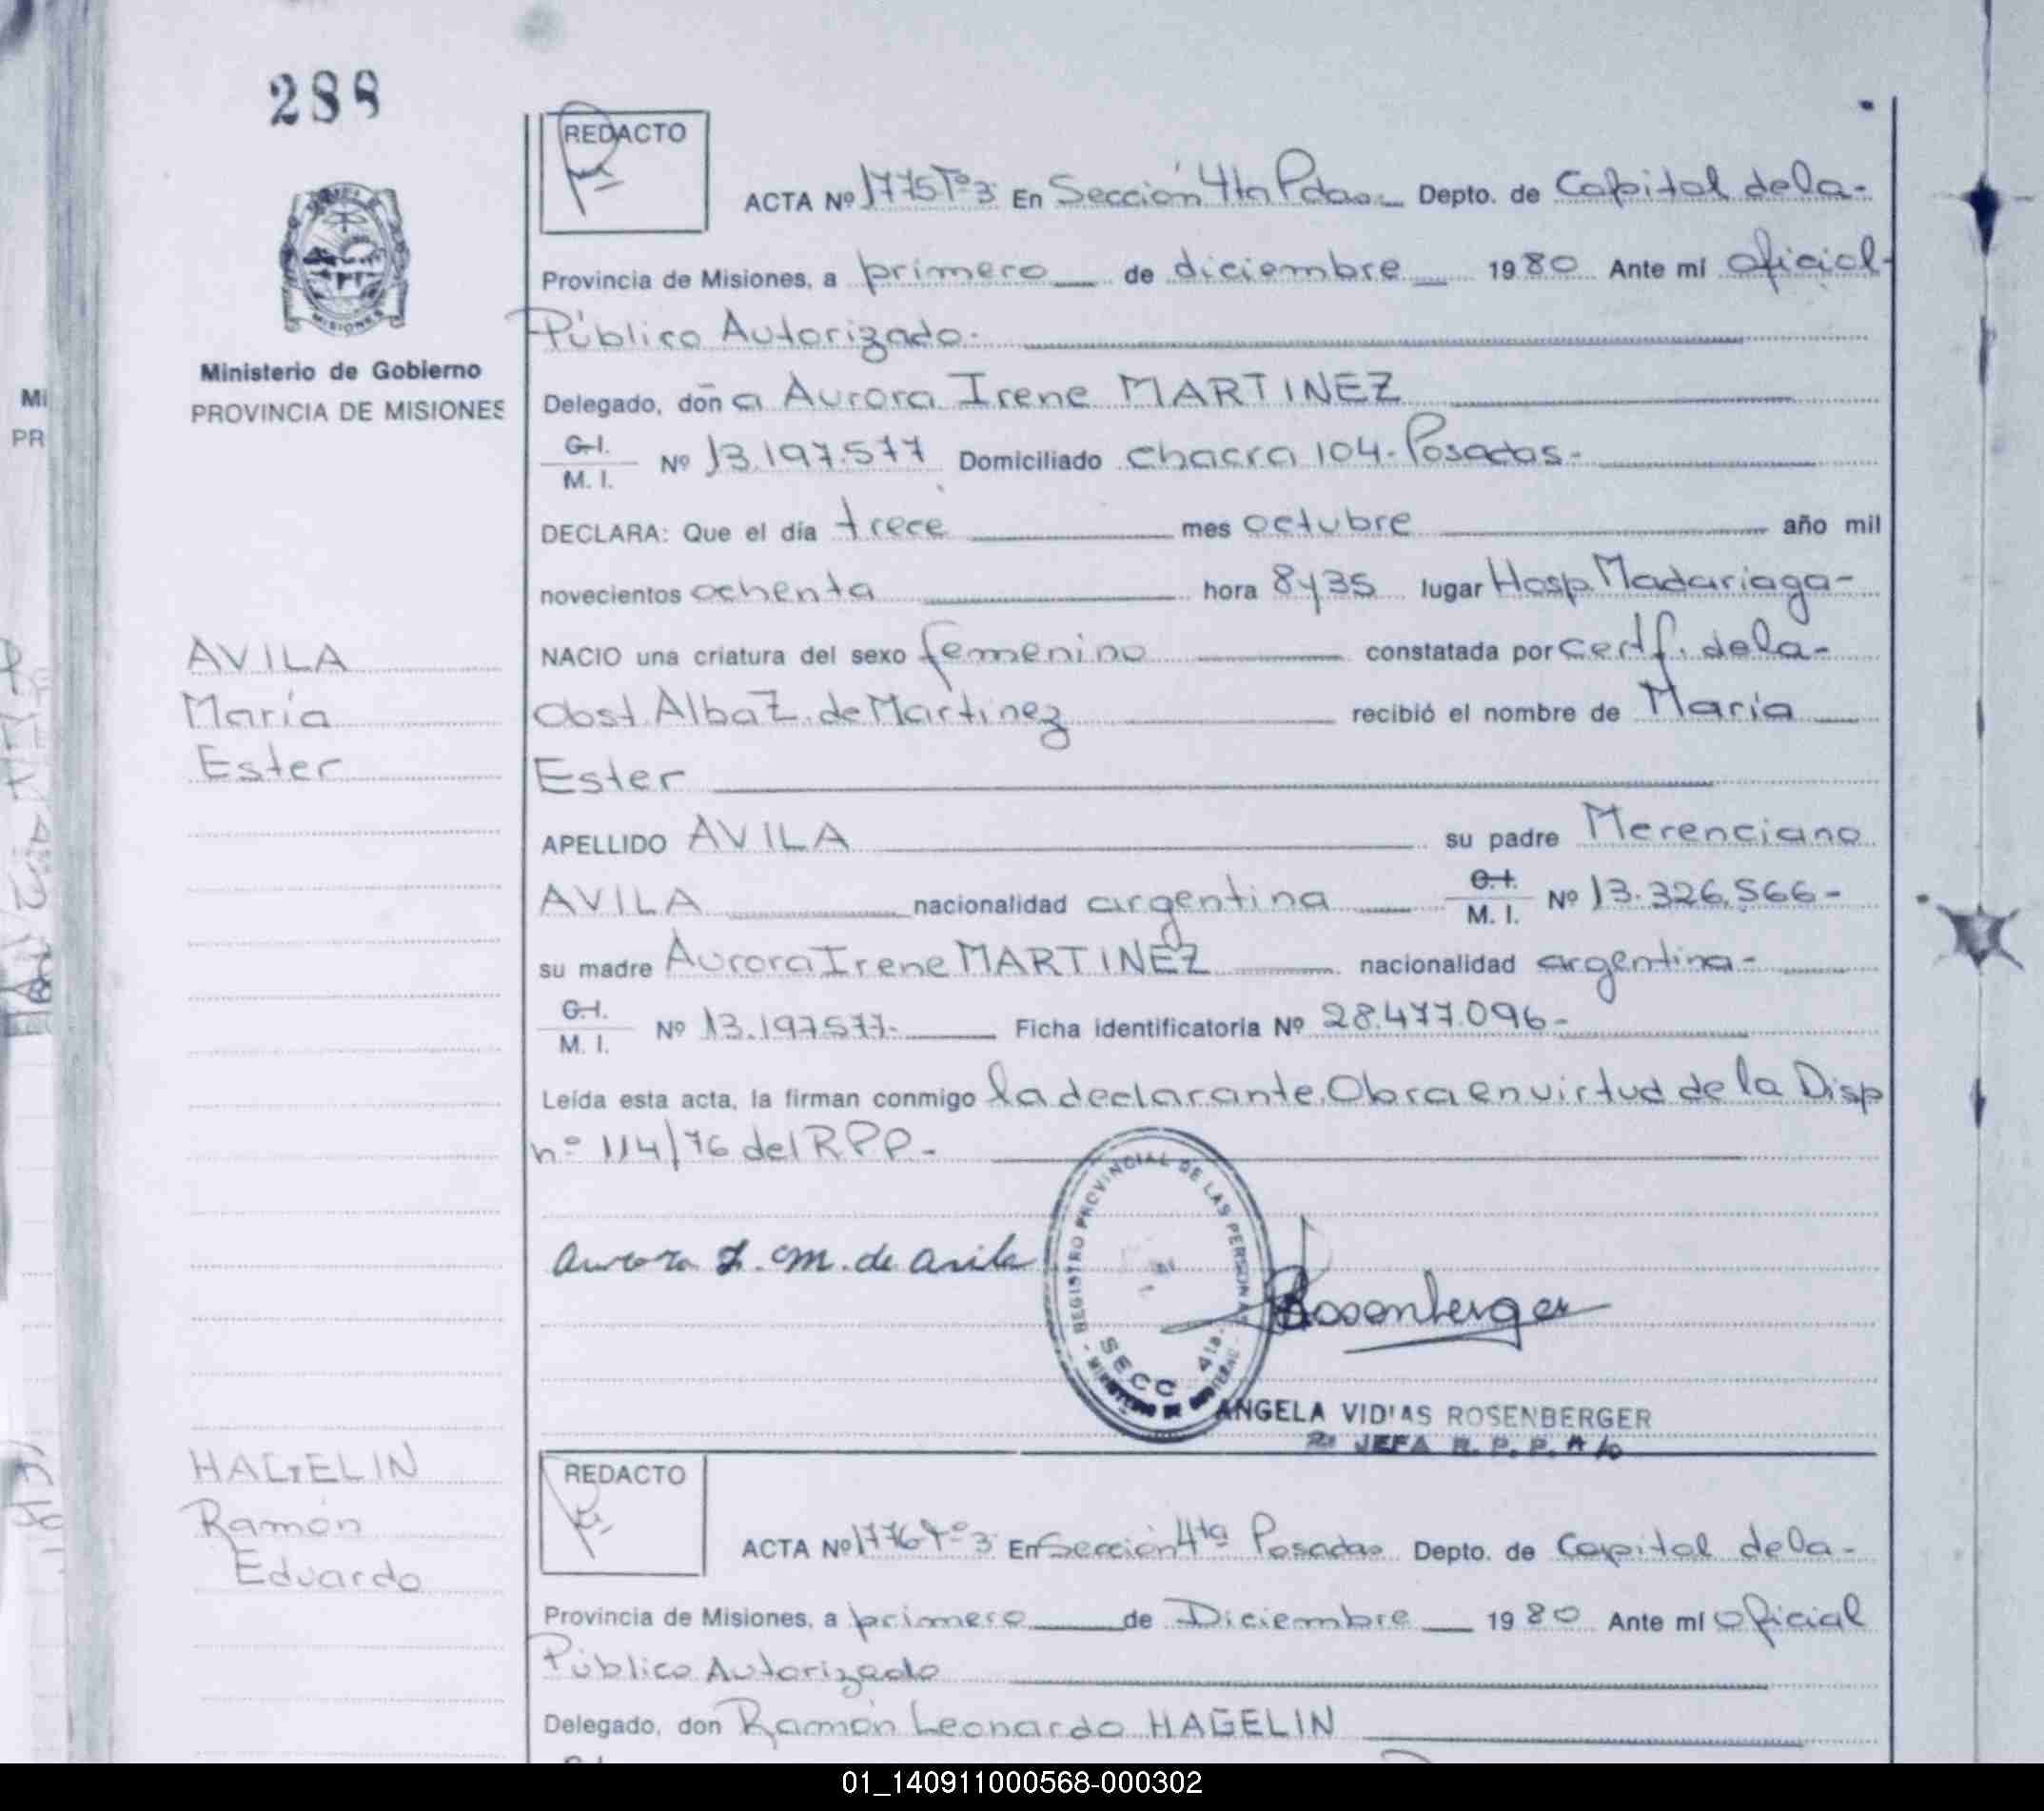 288
REDACTO
ACTA Nº 1775 Tº 3 En Sección 4ta Pdas. Depto. de Capital de la-
Provincia de Misiones, a primero de diciembre 1980 Ante mí oficial
Público Autorizado.
Ministerio de Gobierno
PROVINCIA DE MISIONES
Delegado, doña Aurora Irene MARTINEZ
C.I.
M. I. Nº 13.197.577 Domiciliado chacra 104. Posadas-
DECLARA: Que el día trece mes octubre año mil
novecientos ochenta hora 8y35 lugar Hosp. Madariaga-
AVILA
María
Ester
NACIO una criatura del sexo femenino constatada por certf. de la-
Obst Alba Z. de Martinez recibió el nombre de María
Ester
APELLIDO AVILA su padre Merenciano
AVILA nacionalidad argentina M. I. Nº 13.326.566-
su madre Aurora Irene MARTINEZ nacionalidad argentina-
C.I.
M. I. Nº 13.197577- Ficha identificatoria Nº 28.477.096-
Leída esta acta, la firman conmigo la declarante. Obra en virtud de la Disp
nº 114/76 del RPP-
Aurora I. M. de Avila
REGISTRO PROVINCIAL DE LAS PERSONAS
SECC 4ta.
MINISTERIO DE GOBIERNO
Rosenberger
ANGELA VIDIAS ROSENBERGER
JEFA R. P. P.
HAGELIN
Ramón
Eduardo
REDACTO
ACTA Nº 1776 Tº 3 En Sección 4ta Posadas Depto. de Capital de la-
Provincia de Misiones, a primero de Diciembre 1980 Ante mí oficial
Público Autorizado
Delegado, don Ramón Leonardo HAGELIN
01_140911000568-000302